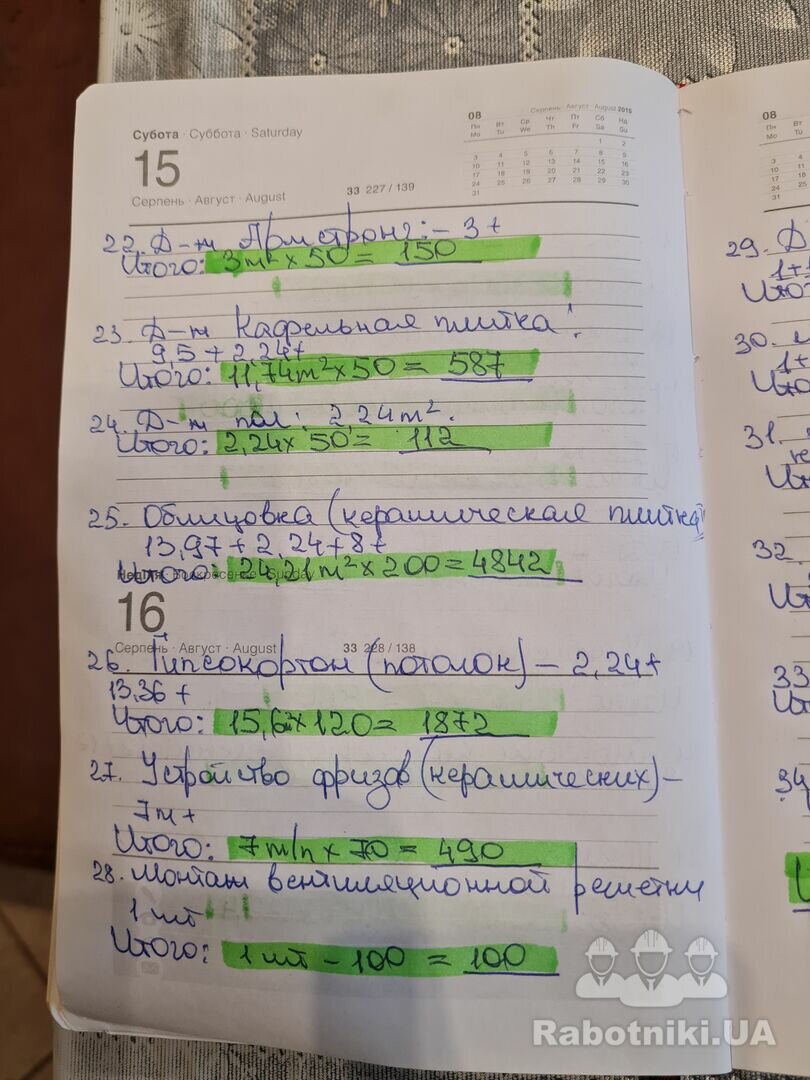 Субота · Суббота · Saturday
15
Серпень · Август · August
33 227 / 139
08 Серпень · Август · August 2015
Пн Вт Ср Чт Пт Сб Нд
Mo Tu We Th Fr Sa Su
1 2
3 4 5 6 7 8 9
10 11 12 13 14 15 16
17 18 19 20 21 22 23
24 25 26 27 28 29 30
31
22. Д-ж Армстронг:- 3+
Итого: 3м² х 50 = 150
23. Д-ж Кафельная плитка:
9,5 + 2,24+
Итого: 11,74м² х 50 = 587
24. Д-ж пол: 2,24м².
Итого: 2,24х 50 = 112
25. Облицовка (керамическая плитка)
13,97 + 2,24+8+
Итого: 24,21м² х 200 = 4842
Неділя · Воскресенье · Sunday
16
Серпень · Август · August
33 228 / 138
26. Гипсокортон (потолок) - 2,24+
13,36 +
Итого: 15,6 х 120 = 1872
27. Устройство фризов (керамических) -
7м +
Итого: 7м/п х 70 = 490
28. Монтаж вентиляционной решетки
1 шт
Итого: 1 шт - 100 = 100
08
Пн Вт
Mo Tu
3 4
10 11
17 18
24 25
31
29. Д
30.
1+
31.
32.
33
34
Rabotniki.UA